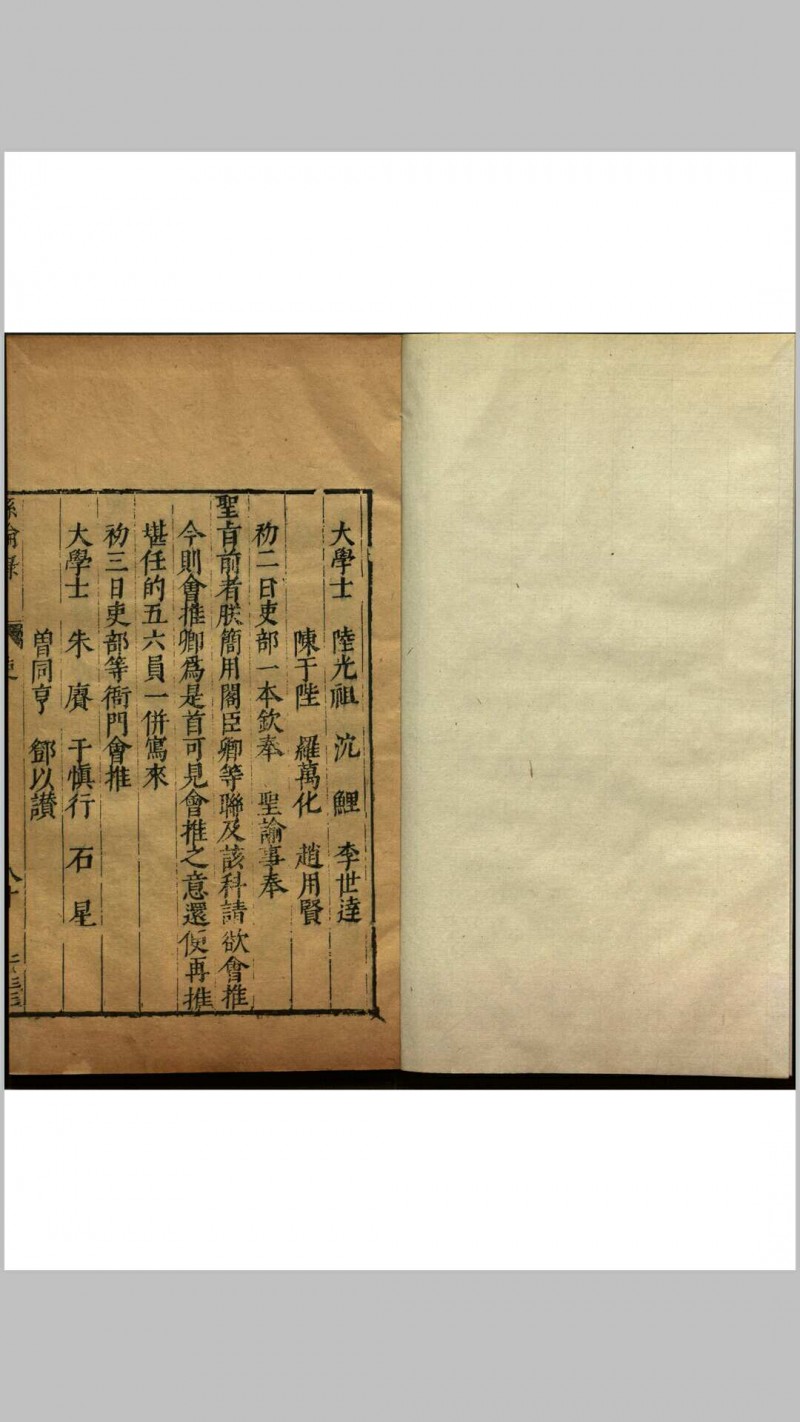 大學士 陸光祖 沈鯉 李世達
陳于陛 羅萬化 趙用賢
初二日吏部一本欽奉 聖諭事奉
聖旨前者朕簡用閣臣卿等聯及該科請欲會推
今則會推卿為是首可見會推之意還便再推
堪任的五六員一併寫來
初三日吏部等衙門會推
大學士 朱賡 于慎行 石星
曾同亨 鄧以讃